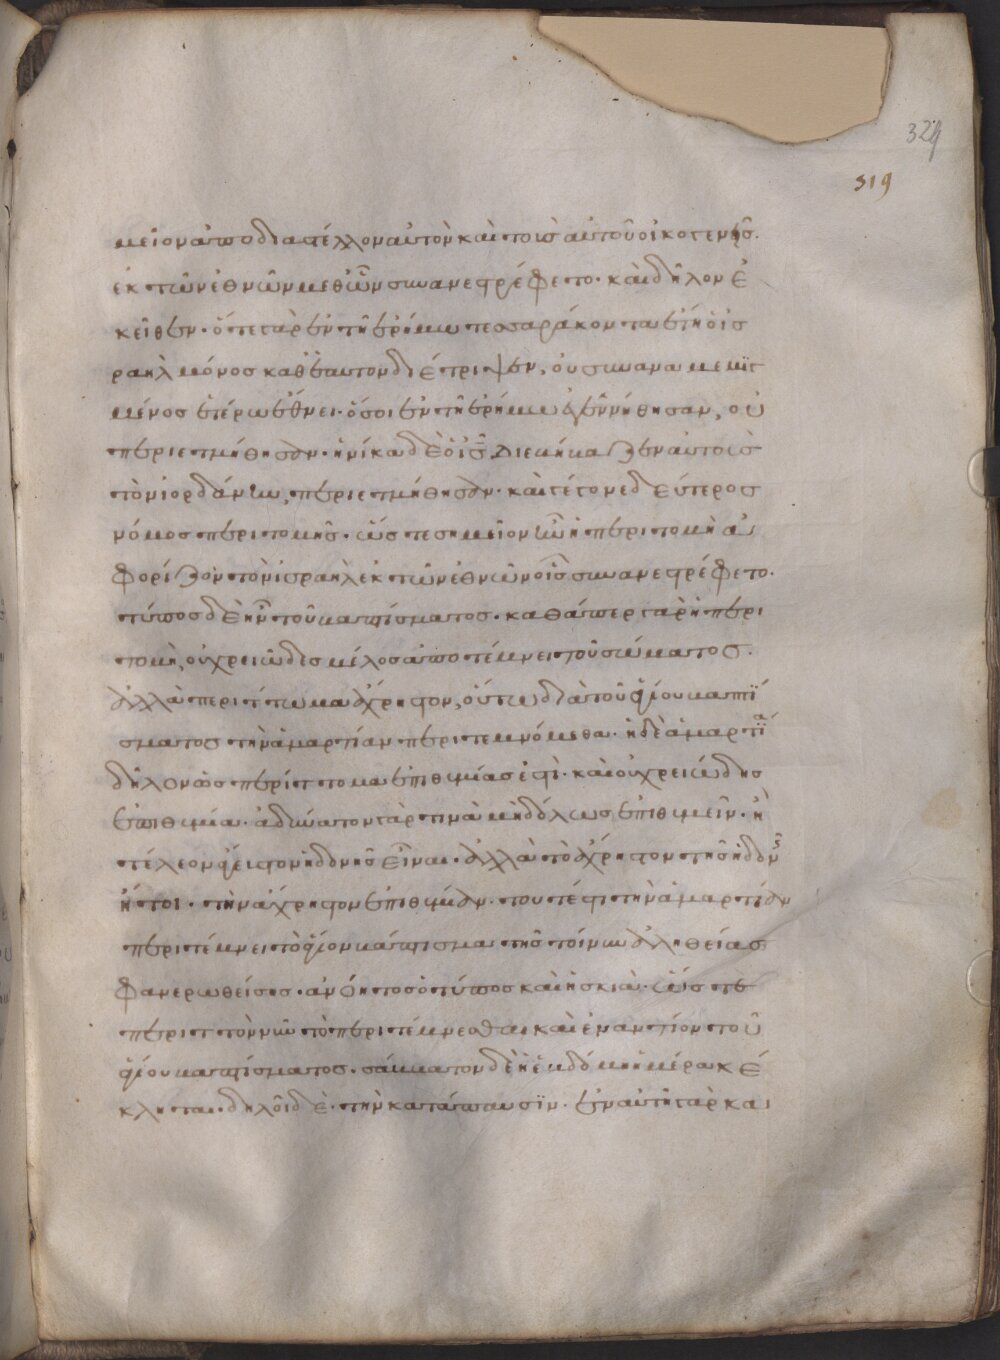 324
319
μεῖον ἀποδιαστέλλον αὐτὸν καὶ τοὺς αὐτοῦ οἰκογενεῖς.
ἐκ τῶν ἐθνῶν μεθ' ὧν συνανεστρέφετο. καὶ δῆλον ἐ
κεῖθεν. ὅτε γὰρ ἐν τῆ ἐρήμω τεσσαράκοντα ἔτη ὁ ἰσ
ραηλ μόνος καθ' ἑαυτὸν διέτριψεν, οὐ συναναμεμιγ
μένος ἑτέρω ἔθνει. ὅσοι ἐν τῆ ἐρήμω ἐγεννήθησαν, οὐ
περιετμήθησαν. ἡνίκα δὲ ὁ ις διεβίβαζεν αὐτοὺς
τὸν ἰορδάνην, περιετμήθησαν. καὶ γέγονε δεύτερος
νόμος περιτομῆς. ὥστε σημεῖον ἦν ἡ περιτομὴ ἀ
φορίζον τὸν ἰσραὴλ ἐκ τῶν ἐθνῶν οἷς συνανεστρέφετο.
τύπος δὲ ἦν τοῦ βαπτίσματος. καθάπερ γὰρ ἡ περι
τομὴ, οὐ χρειῶδες μέλος ἀποτέμνει τοῦ σώματος.
ἀλλὰ περίττωμα ἄχρηστον, οὕτω διὰ τοῦ ἁγίου βαπτί
σματος τὴν ἁμαρτίαν περιτεμνόμεθα. ἡ δὲ ἁμαρτία
δῆλον ὡς περίττομα ἐπιθυμίας ἐστὶ. καὶ οὐ χρειώδης
ἐπιθυμία. ἀδύνατον γάρ τινὰ μὴδόλως ἐπιθυμεῖν. ἢ
τέλεον ἄγευστον ἡδονῆς εἶναι. ἀλλὰ τὸ ἄχρηστον τῆς ἡδονῆς
ἤτοι. τὴν ἄχρηστον ἐπιθυμίαν. τουτέστι τὴν ἁμαρτίαν
περιτέμνει τὸ ἅγιον βάπτισμα τῆς τοίνυν ἀληθείας
φανερωθείσης. ἀνόητος ὁ τύπος καὶ ἡ σκιὰ. ὥστε
περιττὸν νῦν τὸ περιτέμνεσθαι καὶ ἐναντίον τοῦ
ἁγίου βαπτίσματος. σάββατον δὲ ἡ ἑβδόμη ἡμέρα κέ
κληται. δηλοῖ δὲ. τὴν κατάπαυσιν. ἐν αὐτῆ γὰρ κα